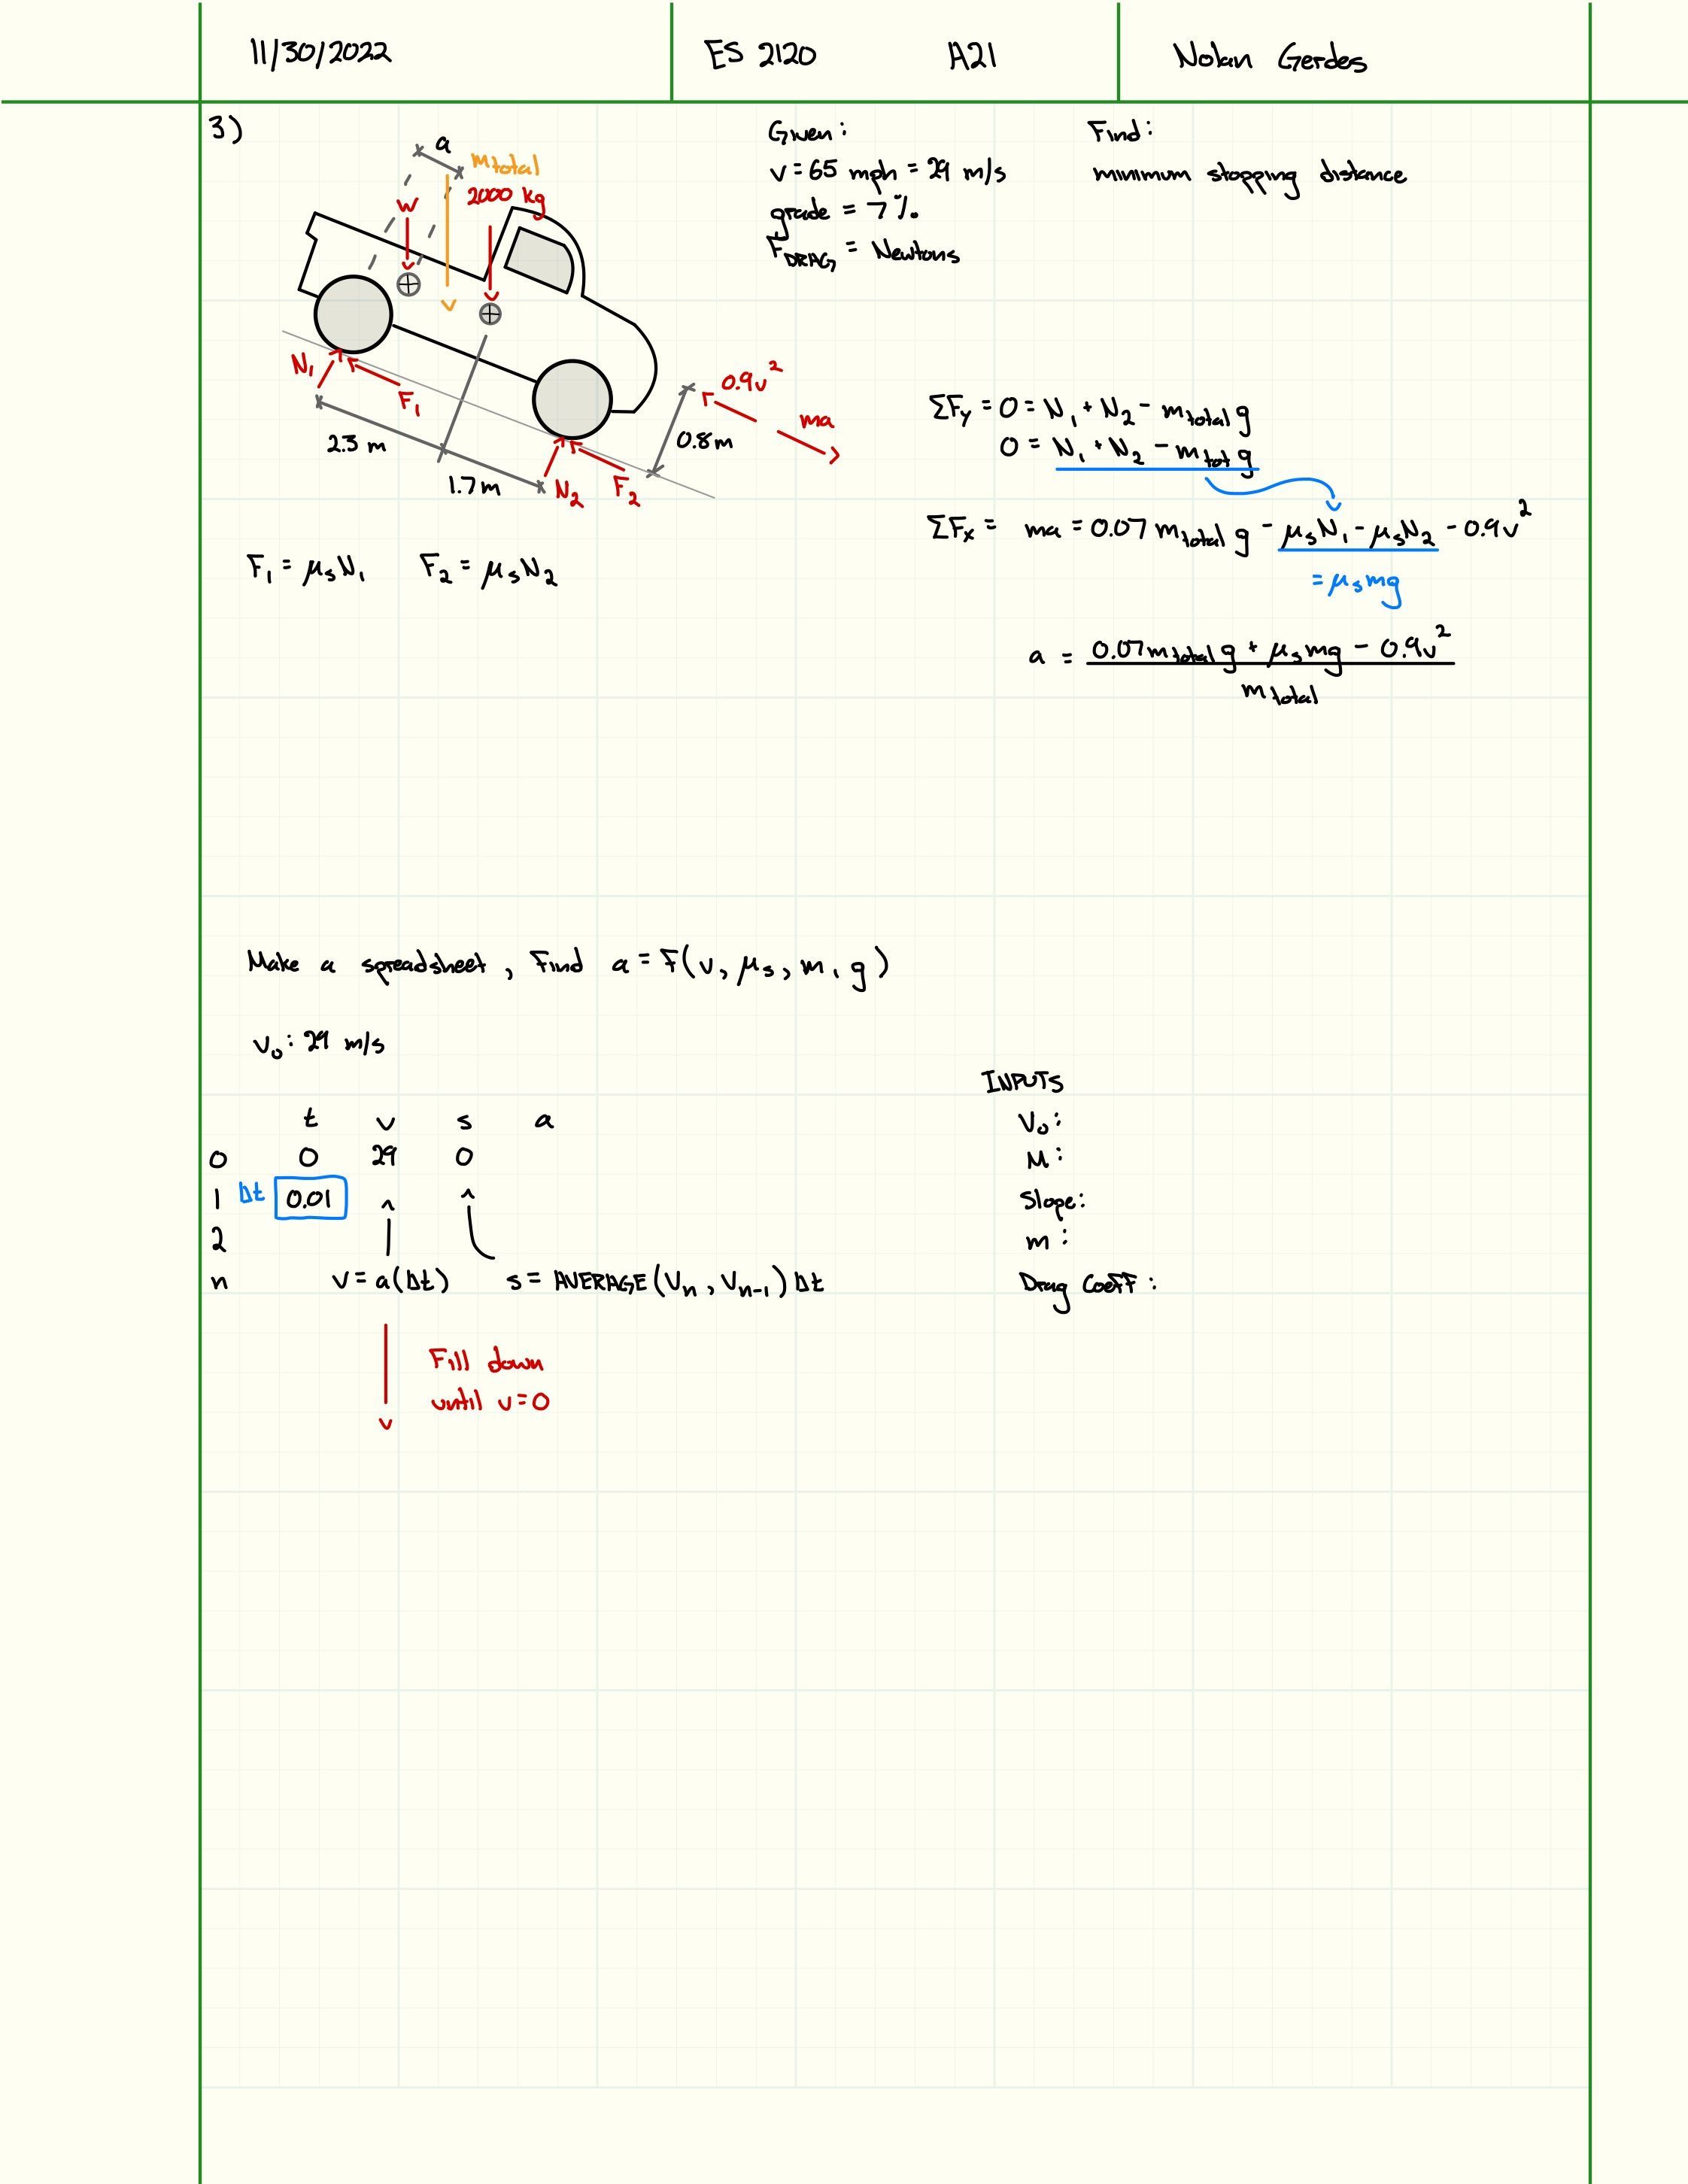 11/30/2022 ES 2120 A21 Nolan Gerdes
3)
a
m total
W
2000 kg
N₁
F₁
2.3 m
1.7 m
N₂
F₂
0.8 m
0.9v²
ma
F₁ = μₛN₁ F₂ = μₛN₂
Given:
v = 65 mph = 29 m/s
grade = 7%
F_DRAG = Newtons
Find:
minimum stopping distance
ΣFy = 0 = N₁ + N₂ - m_total g
0 = N₁ + N₂ - m_tot g
ΣFx = ma = 0.07 m_total g - μₛN₁ - μₛN₂ - 0.9v²
= μₛmg
a = (0.07 m_total g + μₛmg - 0.9v²) / m_total
Make a spreadsheet, Find a = F(v, μₛ, m, g)
v₀: 29 m/s
t v s a
0 0 29 0
1 Δt 0.01
2
n v = a(Δt) s = AVERAGE(Vn, Vn-1) Δt
Fill down
until v=0
INPUTS
V₀:
M:
Slope:
m:
Drag Coeff: